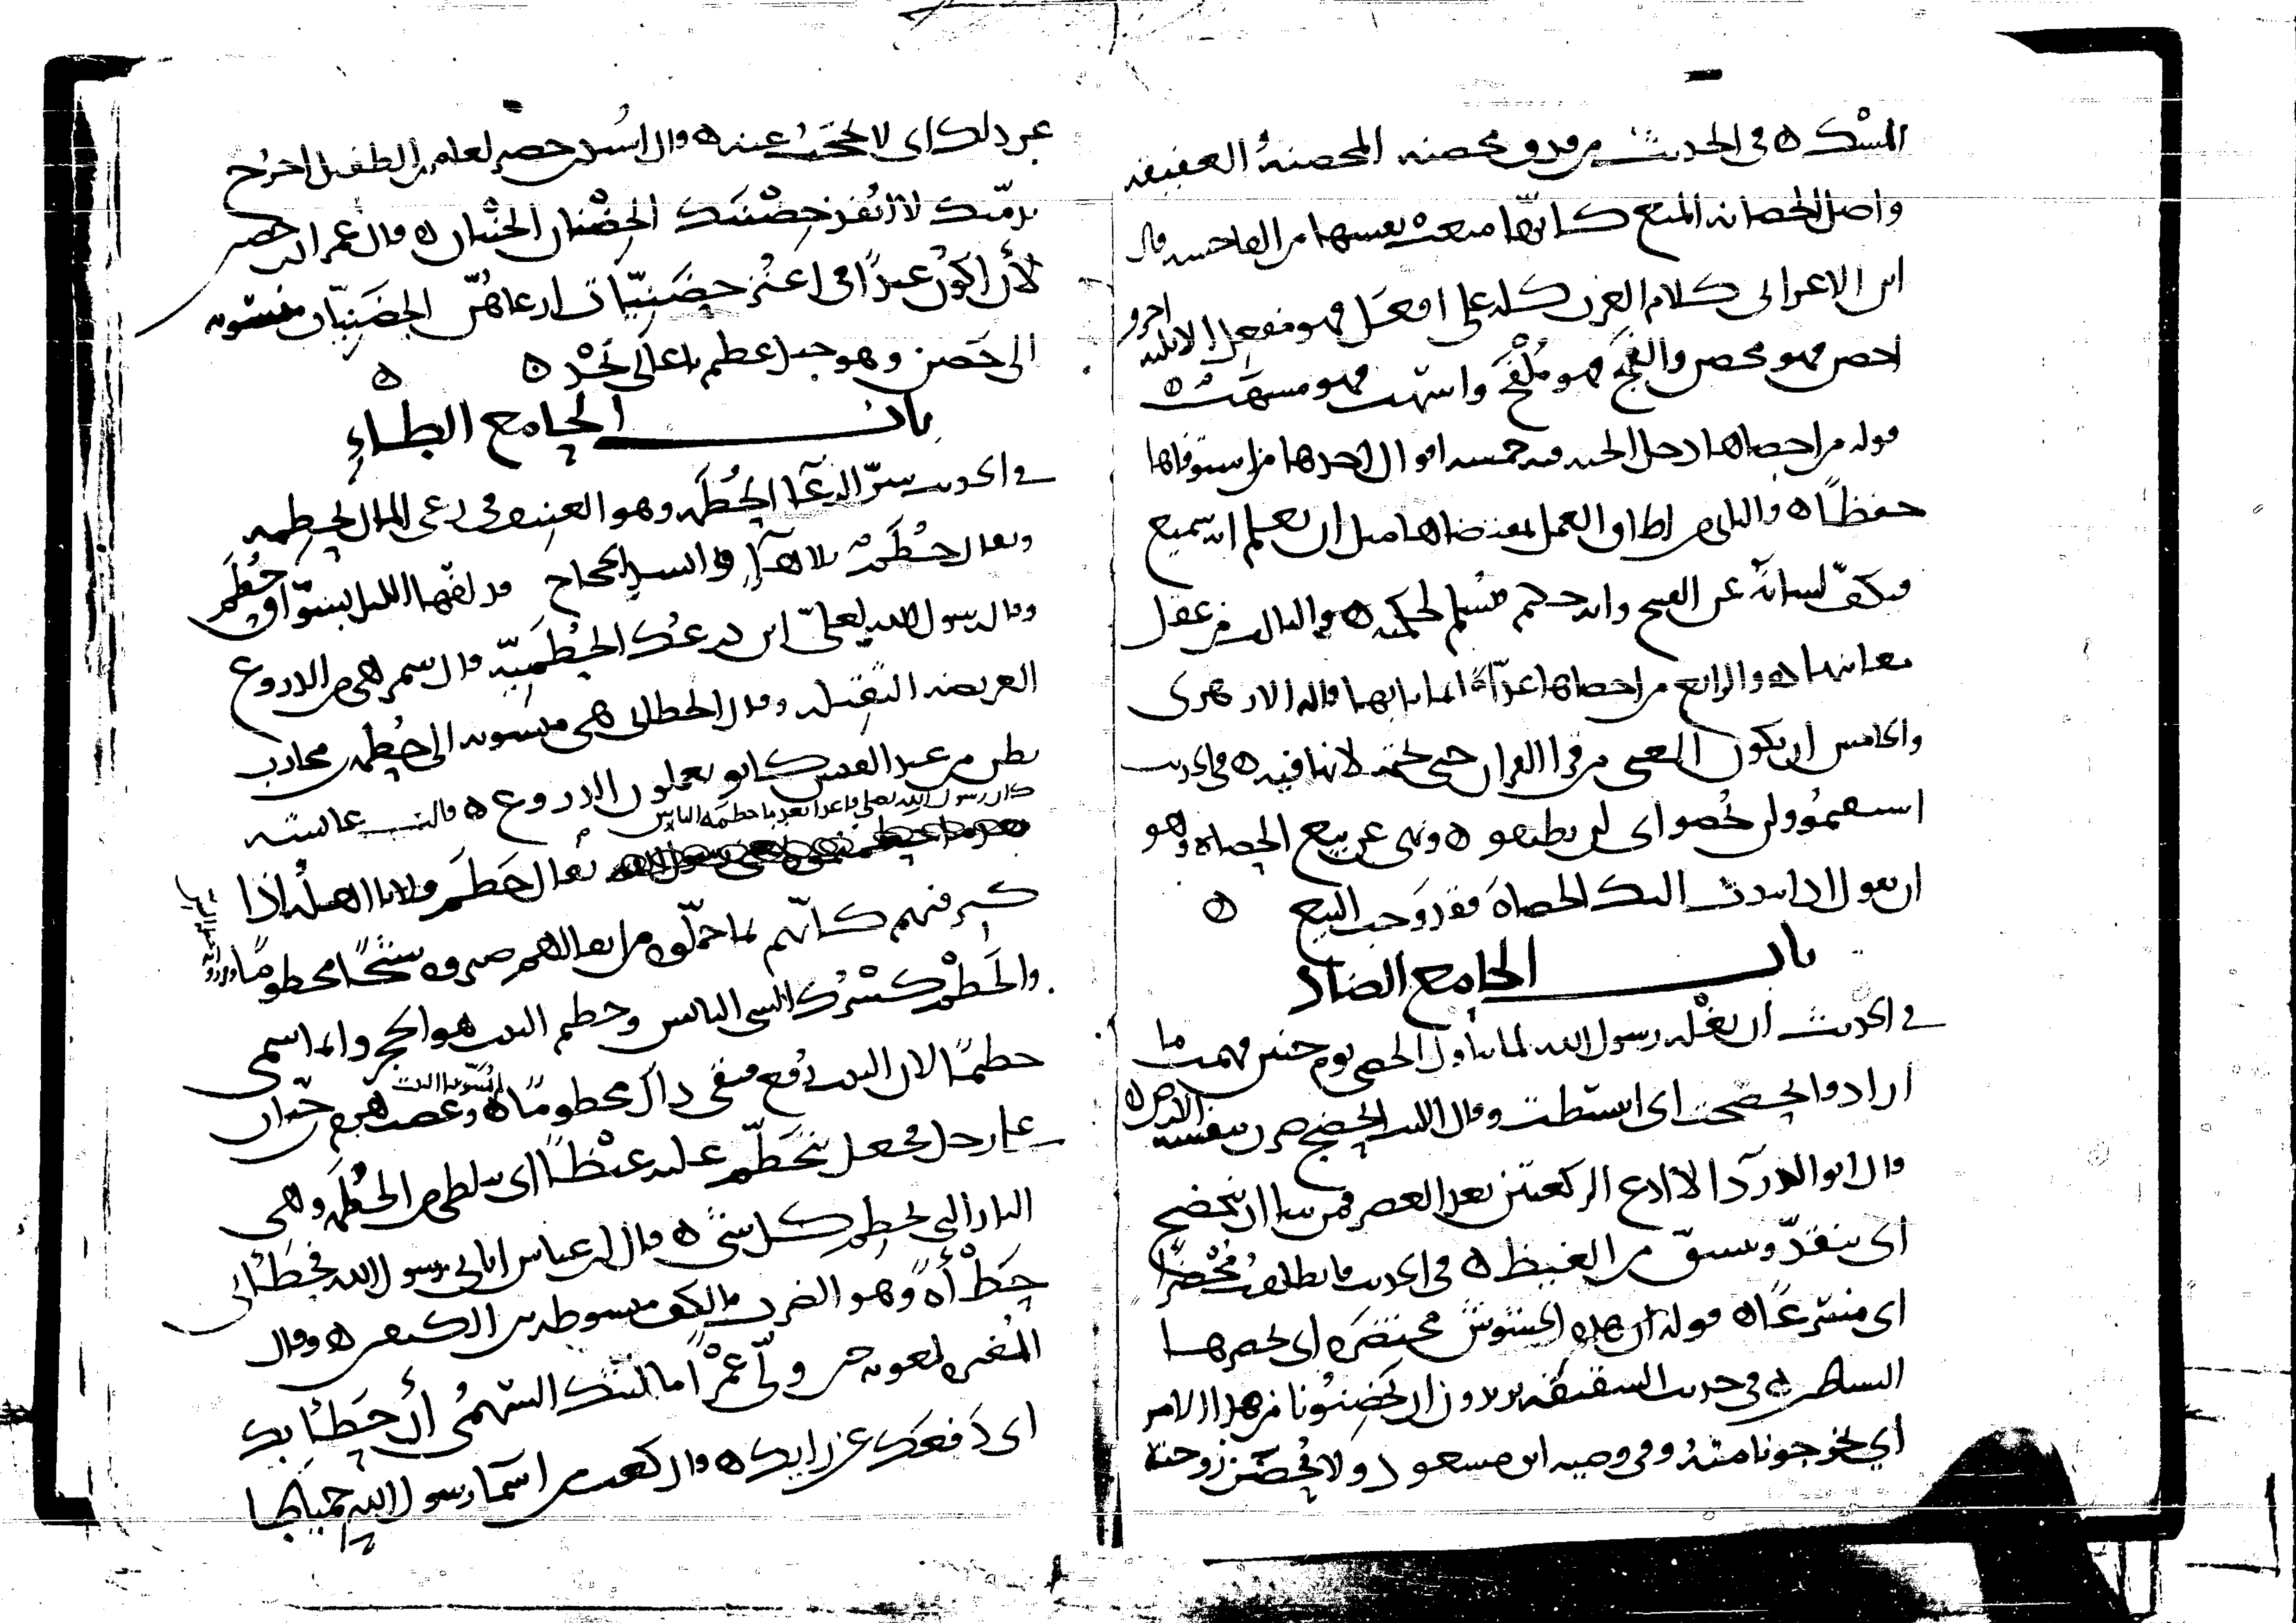 المسك ه في الحديث من قذف محصنة المحصنة العفيفة
واصل الحصانة المنع كأنها منعت نفسها من الفاحشة قال
ابن الاعرابي كلام العرب كله على افعل فهو مفعل الا ثلاثة احرف
احصن فهو محصن والفج فهو ملفج واسهب فهو مسهب ه
قوله من احصاها دخل الجنة فيه خمسة اقوال احدها من استوفاها
حفظا ه والثاني من اطاق العمل بمقتضاها مثل ان يعلم انه سميع
فيكف لسانه عن القبيح وانه حكيم فيسلم لحكمته ه والثالث من عقل
معانيها ه والرابع من احصاها عدا ايمانا بها قاله الازهري
والخامس ان يكون المعنى من قرا القران حتى يختمه لانها فيه ه في الحديث
استقيموا ولن تحصوا اي لن تطيقوا ه ونهى عن بيع الحصاة وهو
ان يقول اذا نبذت اليك الحصاة فقد وجب البيع ه
باب الحا مع الضاد
في الحديث ان بغلة رسول الله لما تناول الحصى يوم حنين فهمت ما
اراد فانحضجت اي انبسطت وقال الليث انحضج ضرب بنفسه الارض ه
قال ابو الدرداء لا ادع الركعتين بعد العصر فمن شا ان ينحضج
اي ينقد وينشق من الغيظ ه في الحديث فانطلقت محضرا
اي مسرعا ه قوله ان هذه الحشوش محتضرة اي يحضرها
الشياطين ه في حديث السقيفة يريدون ان يحضنونا من هذا الامر
اي يخرجونا منه وفي وصية ابن مسعود ولا تحضن زوجته
عن ذلك اي لا تحجب عنه ه وقال اسيد بن حضير لعامر بن الطفيل اخرج
بذمتك لا انفذ حضنيك الحضنان الجنبان ه وقال عمران بن حصين
لأن اكون عبدا في اعنز حضنيات ارعاهن الحضنيات منسوبة
الى حضن وهو جبل عظيم باعالي نجد ه ه
باب الحا مع الطاء
في الحديث شر الرعاء الحطمة وهو العنيف في رعي المال الحطمة
ويقال حطم بلا هاء وانشد الحجاج قد لفها الليل بسواق حطم
وقال رسول الله لعلي اين درعك الحطمية قال شمر هي من الدروع
العريضة الثقيلة وقال الخطابي هي منسوبة الى حطمة بن محارب
بطن من عبد القيس كانوا يعملون الدروع ه قالت عائشة
كان رسول الله يصلي قاعدا بعد ما حطمه الناس
يقال حطم فلانا اهله اذا
كبر فيهم كأنهم بما حملوه من اثقالهم صيروه شيخا محطوما
والحطم كسرك الشي اليابس وحطيم البيت هو الحجر وانما سمي
حطيما لان البيت رفع فبقي ذاك محطوما ه وغضب هرم بن حيان
على رجل فجعل يتحطم عليه غيظا اي يتلظى من الحطمة وهي
النار التي تحطم كل شي ه قال ابن عباس اتاني رسول الله فحطأني
حطأة وهو الضرب بالكف مبسوطة بين الكتفين ه وقال
المغيرة لمعوية حين ولى عمرا ما لبثك السهمي أن حطأ بك
اي دفعك عن رايك ه قال كعب من اسماء رسول الله حمياطا